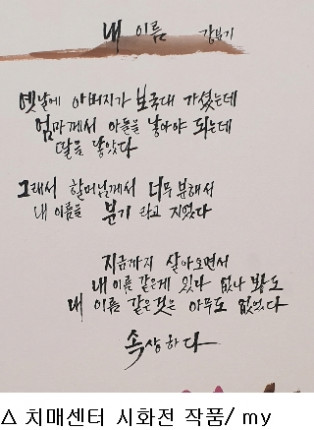 내 이름
강분기
옛날에 아버지가 보국대 가셨는데
엄마께서 아들을 낳아야 되는데
딸을 낳았다
그래서 할머님께서 너무 분해서
내 이름을 분기 라고 지었다
지금까지 살아오면서
내 이름 같은게 있나 없나 봐도
내 이름 같은것은 아무도 없었다
속상하다
△ 치매센터 시화전 작품/ my